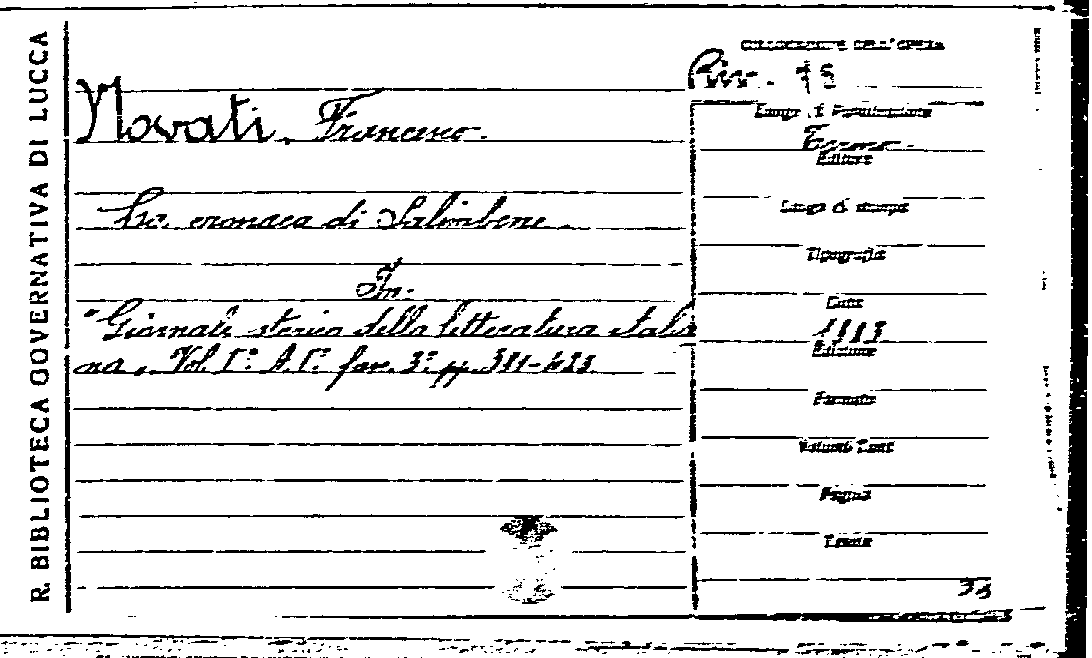 R. BIBLIOTECA GOVERNATIVA DI LUCCA
COLLOCAZIONE DELL'OPERA
Riv. 15
Novati, Francesco.
Luogo di Pubblicazione
Torino.
Editore
La cronaca di Salimbene.
Luogo di stampa
Tipografia
In:
Data
"Giornale storico della letteratura italia
1883
na, Vol. I.° A. I.° fas. 3.° pp.
Edizione
Formato
Volumi
Pagine
Tavole